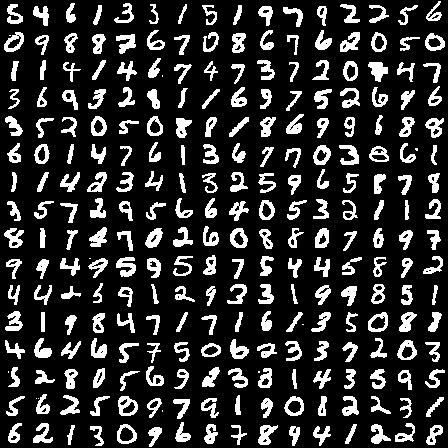 5 4 6 1 3 3 1 5 1 9 7 9 2 2 5 6
0 9 8 8 7 6 7 0 8 6 7 6 2 0 5 0
1 1 4 1 4 6 7 4 7 3 7 2 0 4 7
3 6 9 3 2 8 1 1 6 9 7 5 2 6 9 6
3 5 2 0 5 0 8 8 1 8 6 9 9 6 8 8
6 0 1 4 7 6 1 3 6 7 7 0 3 6 1
1 1 4 2 3 4 1 3 2 5 9 6 5 8 7 8
3 5 7 2 9 5 6 6 4 0 5 3 2 1 1 2
8 1 7 4 7 0 2 6 0 8 8 0 7 6 9 3
9 9 4 9 5 9 5 8 7 5 4 4 5 8 9 2
4 4 5 9 1 2 9 3 3 1 9 9 8 5 1
3 1 9 8 4 7 1 7 1 6 1 3 5 0 8 2
4 6 4 6 5 7 5 0 6 2 3 3 7 2 0 3
5 2 8 0 5 6 9 8 3 8 1 4 3 5 9 5
5 6 2 5 0 9 7 9 1 9 0 8 2 2 3 1
6 2 1 3 0 9 6 8 7 8 4 4 1 2 2 8